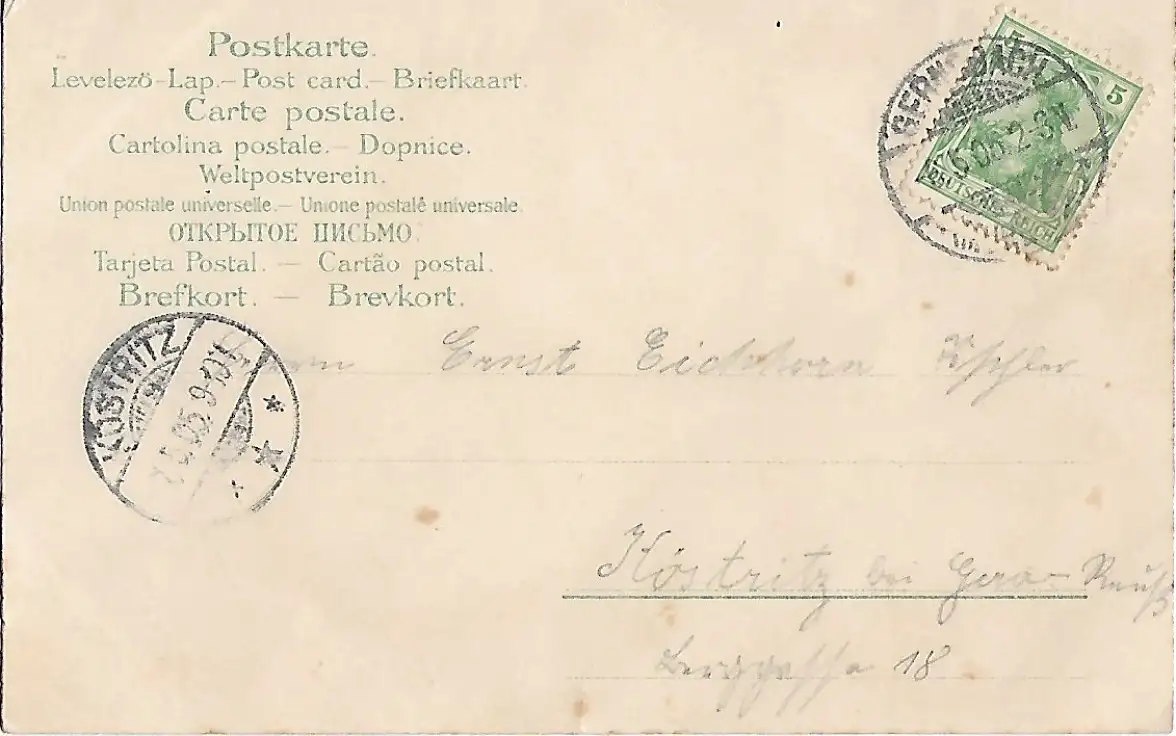 Postkarte.
Levelező-Lap.— Post card.— Briefkaart.
Carte postale.
Cartolina postale.— Dopnice.
Weltpostverein.
Union postale universelle.— Unione postale universale.
ОТКРЫТОЕ ПИСЬМО.
Tarjeta Postal. — Cartão postal.
Brefkort. — Brevkort.
5
DEUTSCHES REICH
GERNSBACH
05. 2-3N.
KÖSTRITZ
05. 9-10V.
Herrn Ernst Eichhorn
Köstritz bei Gera-Reuß
Berggasse 18